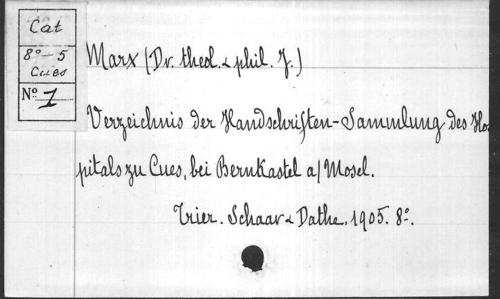 Cat
8º-5
Cues
Nº 1
Marx (Dr. theol. & phil. J.)
Verzeichnis der Handschriften-Sammlung des Hos
pitals zu Cues, bei Bernkastel a/Mosel.
Trier. Schaar & Dathe, 1905. 8º.